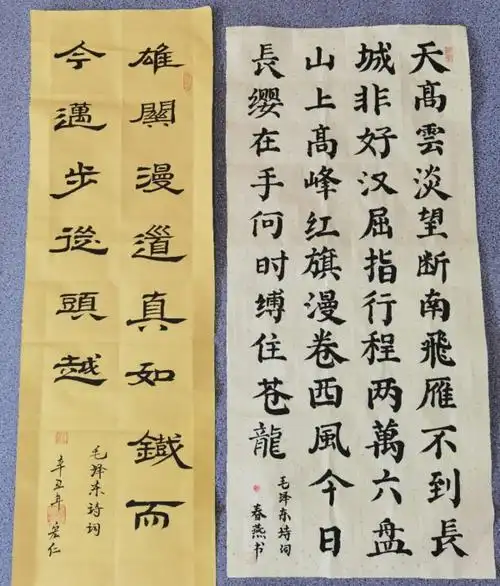 雄關漫道真如鐵而
今邁步從頭越
毛泽东诗词
辛丑年 宏仁
天髙雲淡望断南飛雁不到長
城非好汉屈指行程两萬六盘
山上髙峰红旗漫卷西風今日
長缨在手何时缚住苍龍
毛泽东诗词
春燕书